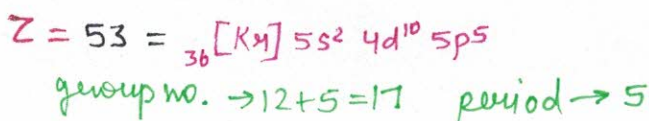 Z = 53 = ₃₆[Kr] 5s² 4d¹⁰ 5p⁵
group no. → 12+5 = 17 period → 5